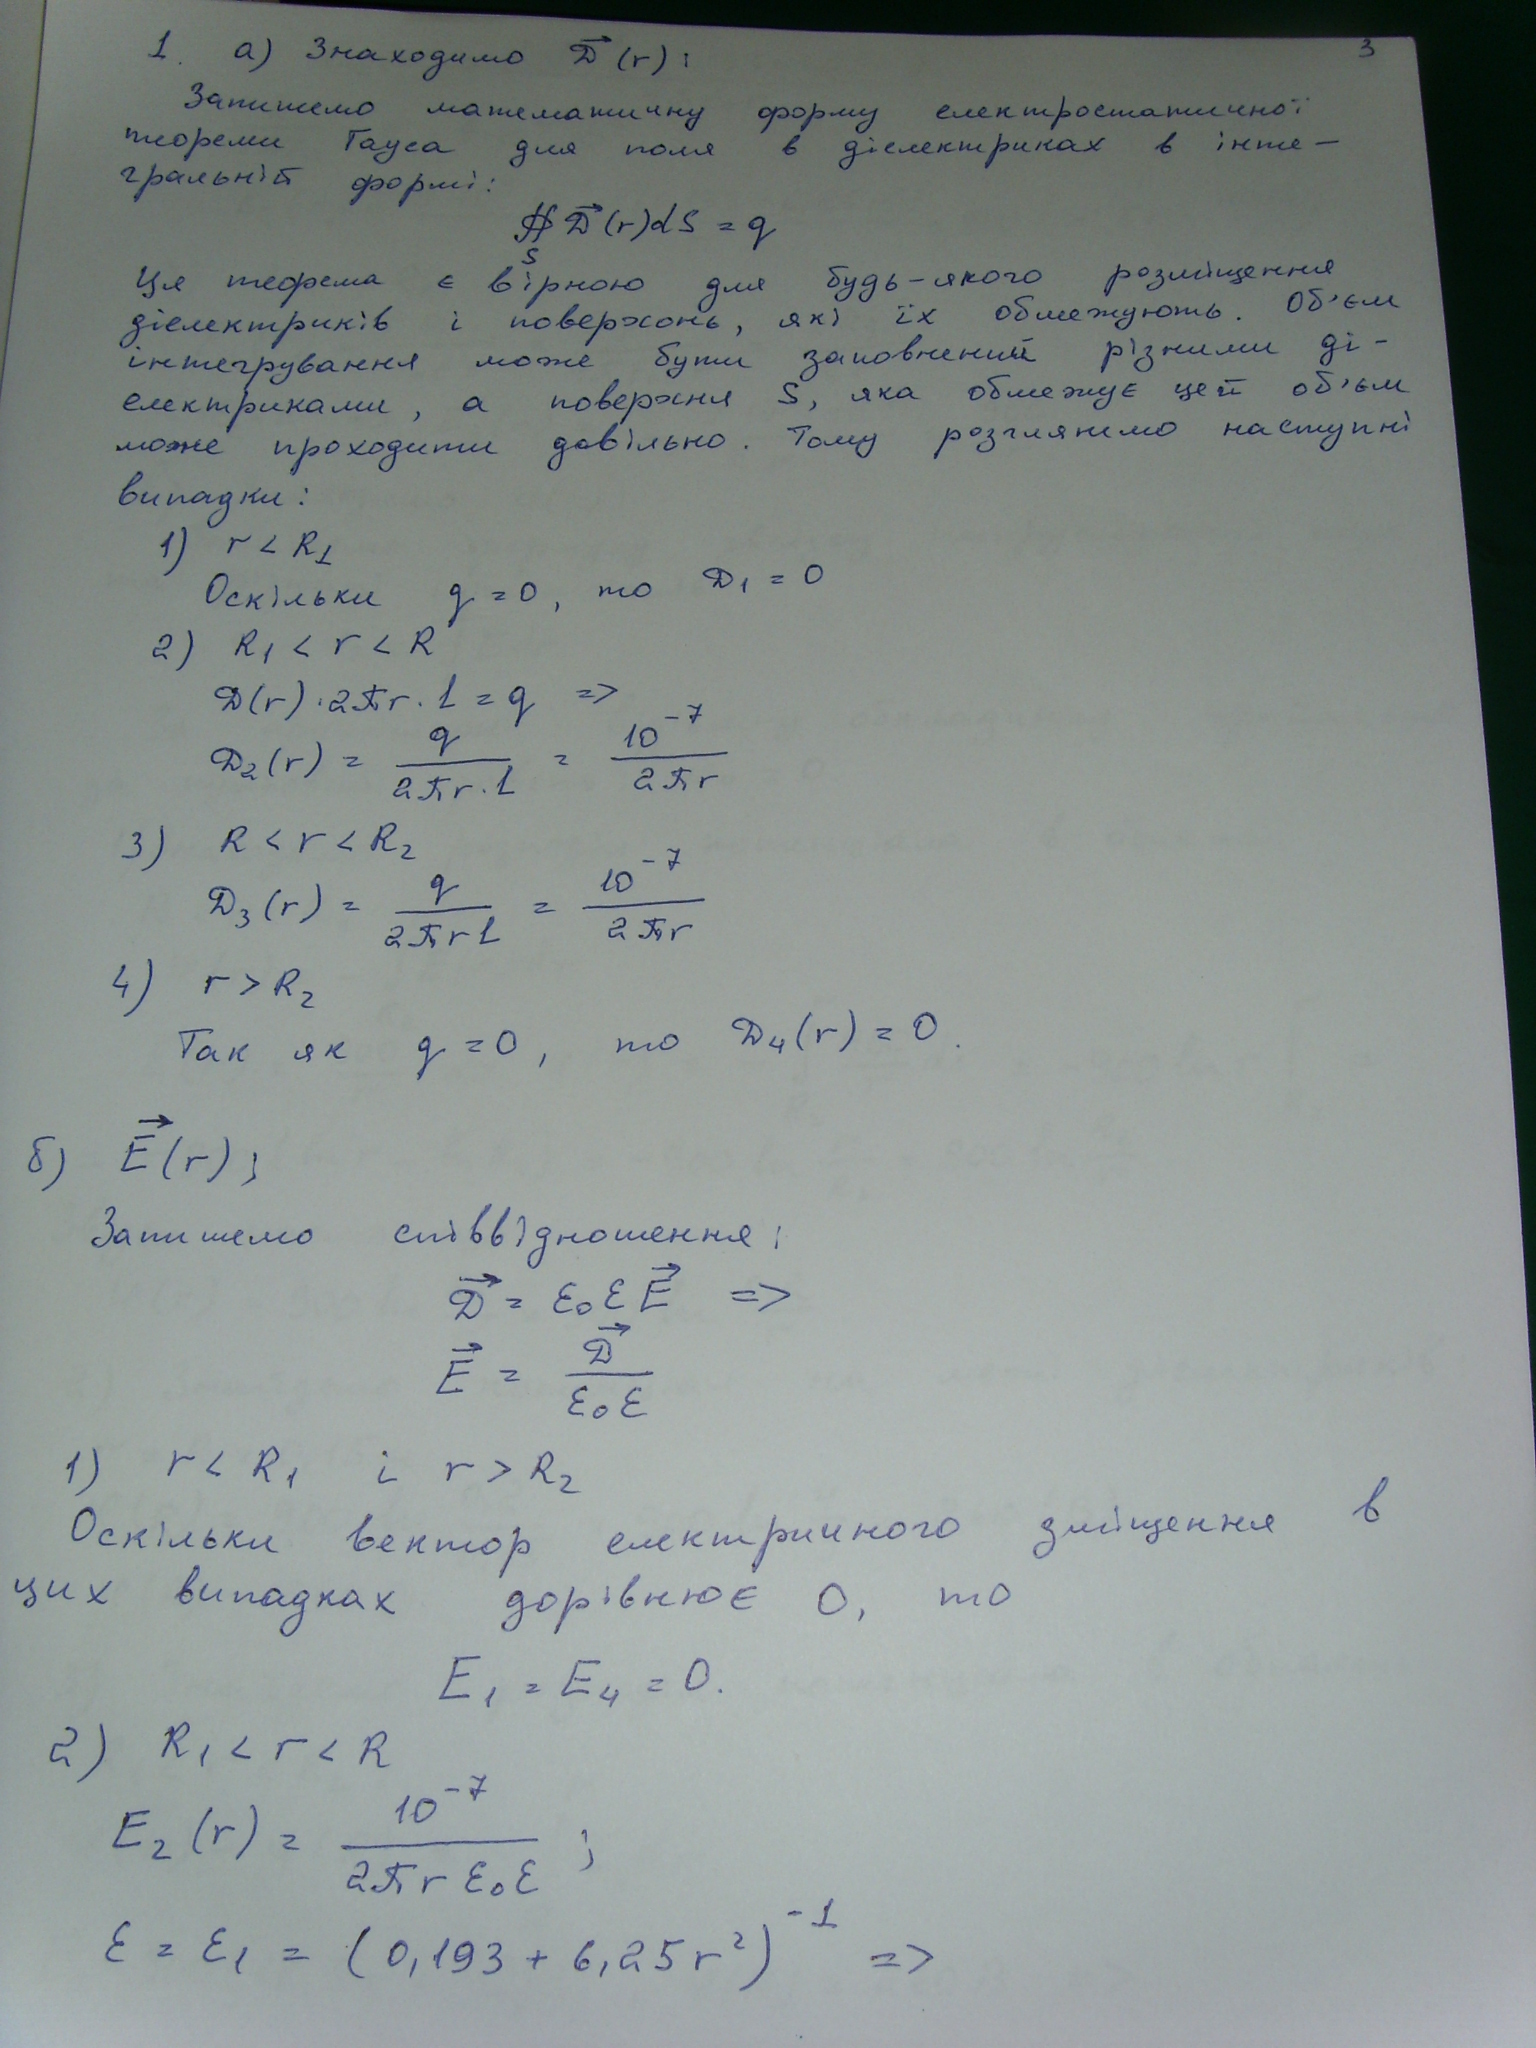 3
1. а) Знаходимо D⃗(r):
Запишемо математичну форму електростатичної
теореми Гауса для поля в діелектриках в інте-
гральній формі:
∯ D⃗(r)dS = q
S
Ця теорема є вірною для будь-якого розміщення
діелектриків і поверхонь, які їх обмежують. Об'єм
інтегрування може бути заповнений різними ді-
електриками, а поверхня S, яка обмежує цей об'єм
може проходити довільно. Тому розглянемо наступні
випадки:
1) r < R₁
Оскільки q = 0, то D₁ = 0
2) R₁ < r < R
D(r)·2πr·1 = q =>
D₂(r) = q/(2πr·1) = 10⁻⁷/(2πr)
3) R < r < R₂
D₃(r) = q/(2πr1) = 10⁻⁷/(2πr)
4) r > R₂
Так як q = 0, то D₄(r) = 0.
б) E⃗(r);
Запишемо співвідношення:
D⃗ = ε₀εE⃗ =>
E⃗ = D⃗/(ε₀ε)
1) r < R₁ і r > R₂
Оскільки вектор електричного зміщення в
цих випадках дорівнює 0, то
E₁ = E₄ = 0.
2) R₁ < r < R
E₂(r) = 10⁻⁷/(2πrε₀ε) ;
ε = ε₁ = (0,193 + 6,25r²)⁻¹ =>